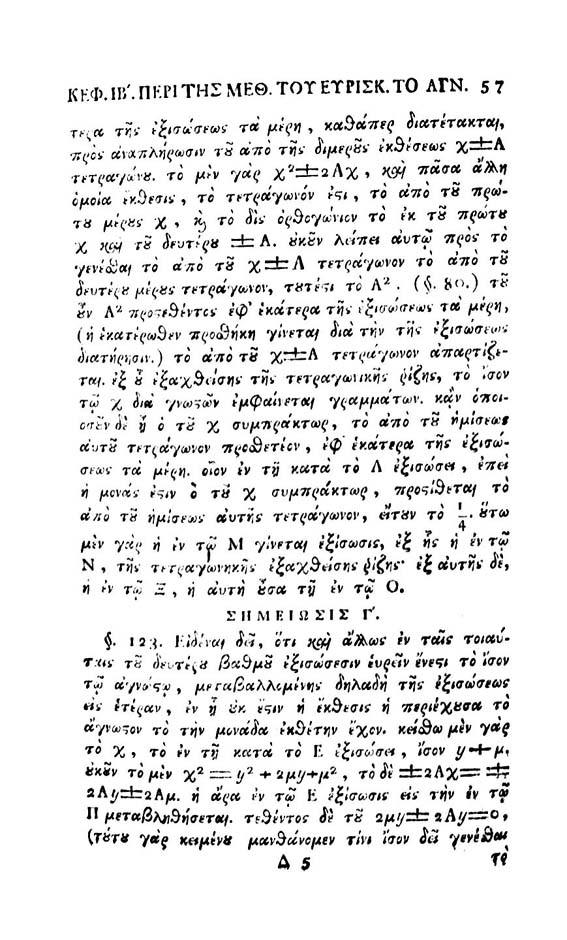 ΚΕΦ. ΙΒ΄. ΠΕΡΙ ΤΗΣ ΜΕΘ. ΤΟΥ ΕΥΡΙΣΚ. ΤΟ ΑΓΝ. 57
τερα τῆς ἐξισώσεως τὰ μέρη, καθάπερ διατέτακται,
πρὸς ἀναπλήρωσιν τοῦ ἀπὸ τῆς διμεροῦς ἐκθέσεως χ±Λ
τετραγώνου. τὸ μὲν γὰρ χ²±2Λχ, καὶ πᾶσα ἄλλη
ὁμοία ἔκθεσις, τὸ τετραγωνόν ἐστι, τὸ ἀπὸ τοῦ πρώ-
του μέρους χ, καὶ τὸ δὶς ὀρθογώνιον τὸ ἐκ τοῦ πρώτου
χ καὶ τοῦ δευτέρου ±Λ. οὐκοῦν λείπει αὐτῷ πρὸς τὸ
γενέσθαι τὸ ἀπὸ τοῦ χ±Λ τετράγωνον τὸ ἀπὸ τοῦ
δευτέρου μέρους τετράγωνον, τουτέστι τὸ Λ². (§. 80.) τοῦ
οὖν Λ² προστεθέντος ἐφ' ἑκάτερα τῆς ἐξισώσεως τὰ μέρη,
(ἡ ἑκατέρωθεν προσθήκη γίνεται διὰ τὴν τῆς ἐξισώσεως
διατήρησιν.) τὸ ἀπὸ τοῦ χ±Λ τετράγωνον ἀπαρτίζε-
ται. ἐξ οὗ ἐξαχθείσης τῆς τετραγωνικῆς ῥίζης, τὸ ἴσον
τῷ χ διὰ γνωστῶν ἐμφαίνεται γραμμάτων. κἂν ὁποι-
οσοῦν δὲ ᾖ ὁ τοῦ χ συμπράκτωρ, τὸ ἀπὸ τοῦ ἡμίσεως
αὐτοῦ τετράγωνον προσθετέον, ἐφ' ἑκάτερα τῆς ἐξισώ-
σεως τὰ μέρη. οἷον ἐν τῇ κατὰ τὸ Λ ἐξισώσει, ἐπεὶ
ἡ μονάς ἐστιν ὁ τοῦ χ συμπράκτωρ, προστίθεται τὸ
ἀπὸ τοῦ ἡμίσεως αὐτῆς τετράγωνον, εἴτουν τὸ 1/4. οὕτω
μὲν γὰρ ἡ ἐν τῷ Μ γίνεται ἐξίσωσις, ἐξ ἧς ἡ ἐν τῷ
Ν, τῆς τετραγωνηκῆς ἐξαχθείσης ῥίζης· ἐξ αὐτῆς δὲ,
ἡ ἐν τῷ Ξ, ἡ αὐτὴ οὖσα τῇ ἐν τῷ Ο.
ΣΗΜΕΙΩΣΙΣ Γ΄.
§. 123. Εἰδέναι δεῖ, ὅτι καὶ ἄλλως ἐν ταῖς τοιαύ-
ταις τοῦ δευτέρου βαθμοῦ ἐξισώσεσιν εὑρεῖν ἔνεστι τὸ ἴσον
τῷ ἀγνώστῳ, μεταβαλλομένης δηλαδὴ τῆς ἐξισώσεως
εἰς ἑτέραν, ἐν ᾗ οὐκ ἔστιν ἡ ἔκθεσις ἡ περιέχουσα τὸ
ἄγνωστον τὸ τὴν μονάδα ἐκθέτην ἔχον. κείσθω μὲν γὰρ
τὸ χ, τὸ ἐν τῇ κατὰ τὸ Ε ἐξισώσει, ἴσον y+μ,
οὐκοῦν τὸ μὲν χ²=y²+2μy+μ², τὸ δὲ ±2Λχ=±
2Λy±2Λμ. ἡ ἄρα ἐν τῷ Ε ἐξίσωσις εἰς τὴν ἐν τῷ
Π μεταβληθήσεται. τεθέντος δὲ τοῦ 2μy±2Λy=0,
(τούτου γὰρ κειμένου μανθάνομεν τίνι ἴσον δεῖ γενέσθαι
Δ 5 τὸ